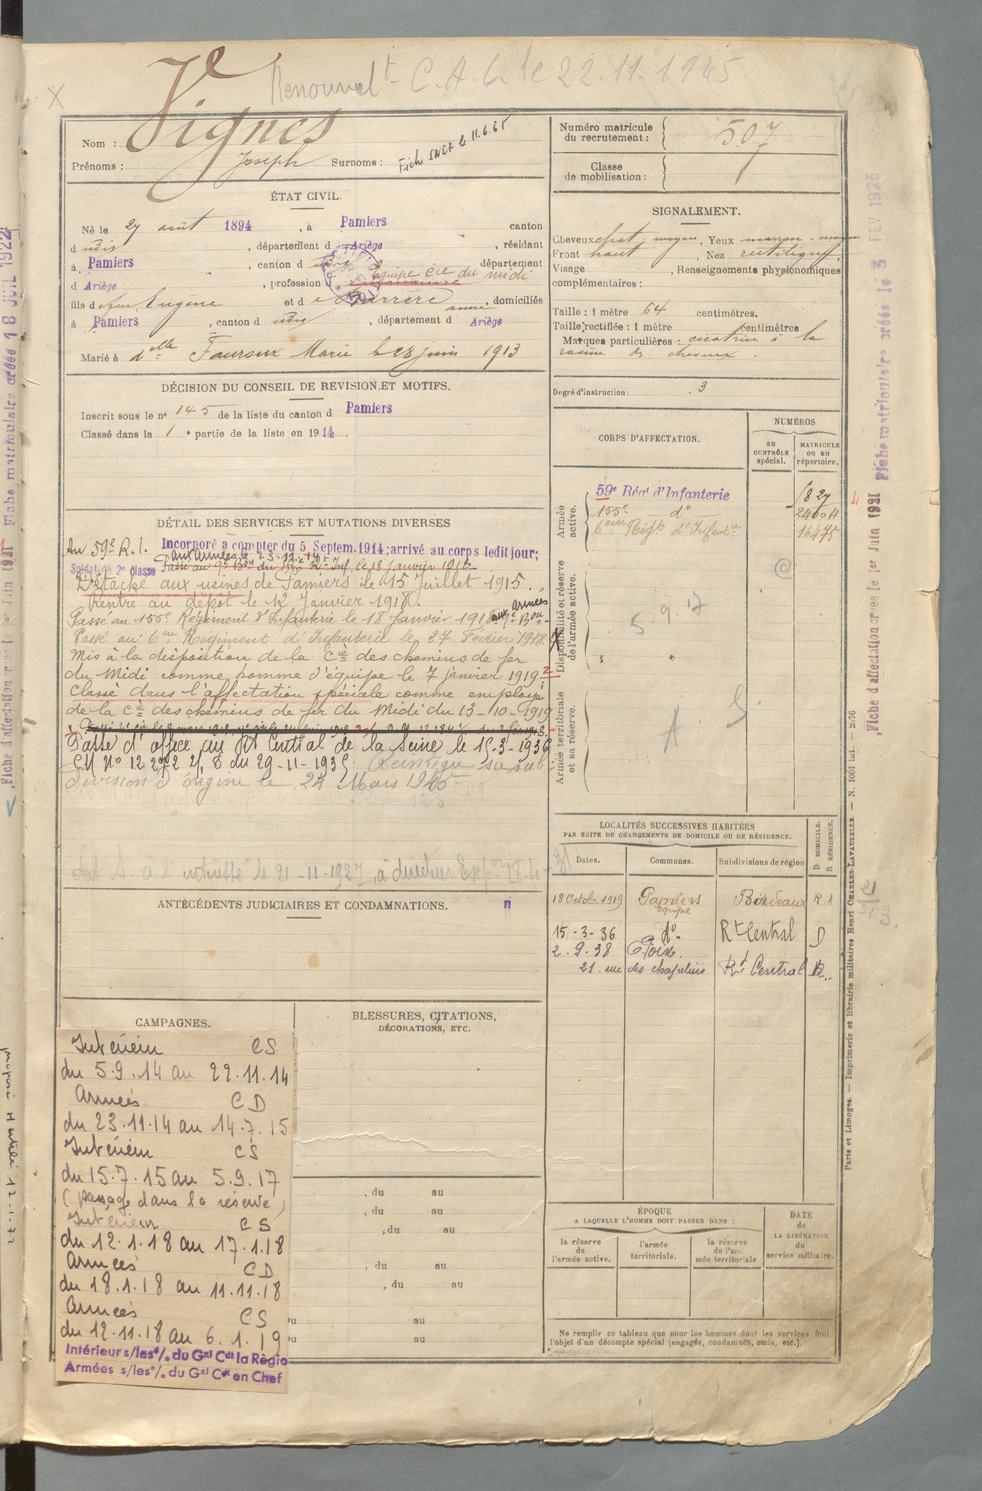 Renouvelt C.A.C. le 22.11.1945
Nom : Vignes
Prénoms : Joseph Surnoms :
Fiche SNCF le 11.6.65
ÉTAT CIVIL.
Né le 27 août 1894, à Pamiers canton
d udis, département d Ariège, résidant
à Pamiers, canton d udis, département
d Ariège, profession d équipe Cie du midi
fils d feu Eugène et d e Barrère anne, domiciliés
à Pamiers, canton d udis, département d Ariège
Marié à delle Fauroux Marie le 28 juin 1913
DÉCISION DU CONSEIL DE REVISION ET MOTIFS.
Inscrit sous le no 145 de la liste du canton d Pamiers
Classé dans la 1e partie de la liste en 1914.
DÉTAIL DES SERVICES ET MUTATIONS DIVERSES
Au 59e R.I. Incorporé à compter du 5 Septem. 1914; arrivé au corps ledit jour;
aux armées le 23.11.14
Soldat de 2e classe
Détaché aux usines de Pamiers le 15 Juillet 1915.
Rentré au dépôt le 12 Janvier 1918.
Passé au 155e Régiment d'Infanterie le 18 Janvier 1918 aux armées
Passé au 6eme Régiment d'Infanterie le 27 Février 1918.
Mis à la disposition de la Cie des chemins de fer
du Midi comme homme d'équipe le 7 janvier 1919
Classé dans l'affectation spéciale comme employé
de la Cie des chemins de fer du Midi du 13-10-1919
Passé d'office au Rt Central de la Seine le 15-3-1936
CM No 12272 2/ du 29-11-1935. Réintègre sa sub-
division d'origine le 24 Mars 1945
à l'intéressé le 21-11-1927, à direction
ANTÉCÉDENTS JUDICIAIRES ET CONDAMNATIONS. n
CAMPAGNES.
Intérieur CS
du 5.9.14 au 22.11.14
Armées CD
du 23.11.14 au 14.7.15
Intérieur CS
du 15.7.15 au 5.9.17
(passage dans la réserve)
Intérieur CS
du 12.1.18 au 17.1.18
Armées CD
du 18.1.18 au 11.11.18
Armées CS
du 12.11.18 au 6.1.19
Intérieur s/lese/. du Gal Cdt la Régio
Armées s/lese/. du Gal Cdt en Chef
BLESSURES, CITATIONS,
DÉCORATIONS, ETC.
, du au
, du au
, du au
, du au
, du au
du au
du au
Numéro matricule
du recrutement : 507
Classe
de mobilisation :
SIGNALEMENT.
Cheveux chat. moyen, Yeux marron-moyen
Front haut, Nez rectiligne
Visage , Renseignements physionomiques
complémentaires :
Taille : 1 mètre 64 centimètres.
Taille rectifiée : 1 mètre centimètres
Marques particulières : cicatrice à la
racine des cheveux.
Degré d'instruction : 3
CORPS D'AFFECTATION.
NUMÉROS
AU CONTRÔLE spécial.
MATRICULE OU AU répertoire.
Armée active.
59e Régt d'Infanterie 1827
155e do 24004
6eme Régt d'Infantie 16475
Disponibilité et réserve de l'armée active.
5.9.17
Armée territoriale et sa réserve.
A S
LOCALITÉS SUCCESSIVES HABITÉES
PAR SUITE DE CHANGEMENTS DE DOMICILE OU DE RÉSIDENCE.
Dates. Communes. Subdivisions de région D DOMICILE. R RÉSIDENCE.
13 Octob. 1919 Pamiers Bordeaux R.
15-3-36 do Rt Central D
2-9-38 Foix
21 rue des chapeliers Rt Central R.
ÉPOQUE
A LAQUELLE L'HOMME DOIT PASSER DANS :
la réserve de l'armée active.
l'armée territoriale.
la réserve de l'armée territoriale
DATE de LA LIBÉRATION du service militaire.
Ne remplir ce tableau que pour les hommes dont les services font
l'objet d'un décompte spécial (engagés, condamnés, omis, etc.).
Paris et Limoges. — Imprimerie et librairie militaires Henri CHARLES-LAVAUZELLE. — N. 1001 bis. — 2-76
Fiche matriculaire créée le 3 FEV 1923
Fiche d'affectation créée le 1er Juin 1921
Fiche matriculaire créée 18 JUIL 1922
Fiche d'affectation créée le 1er Juin 1921